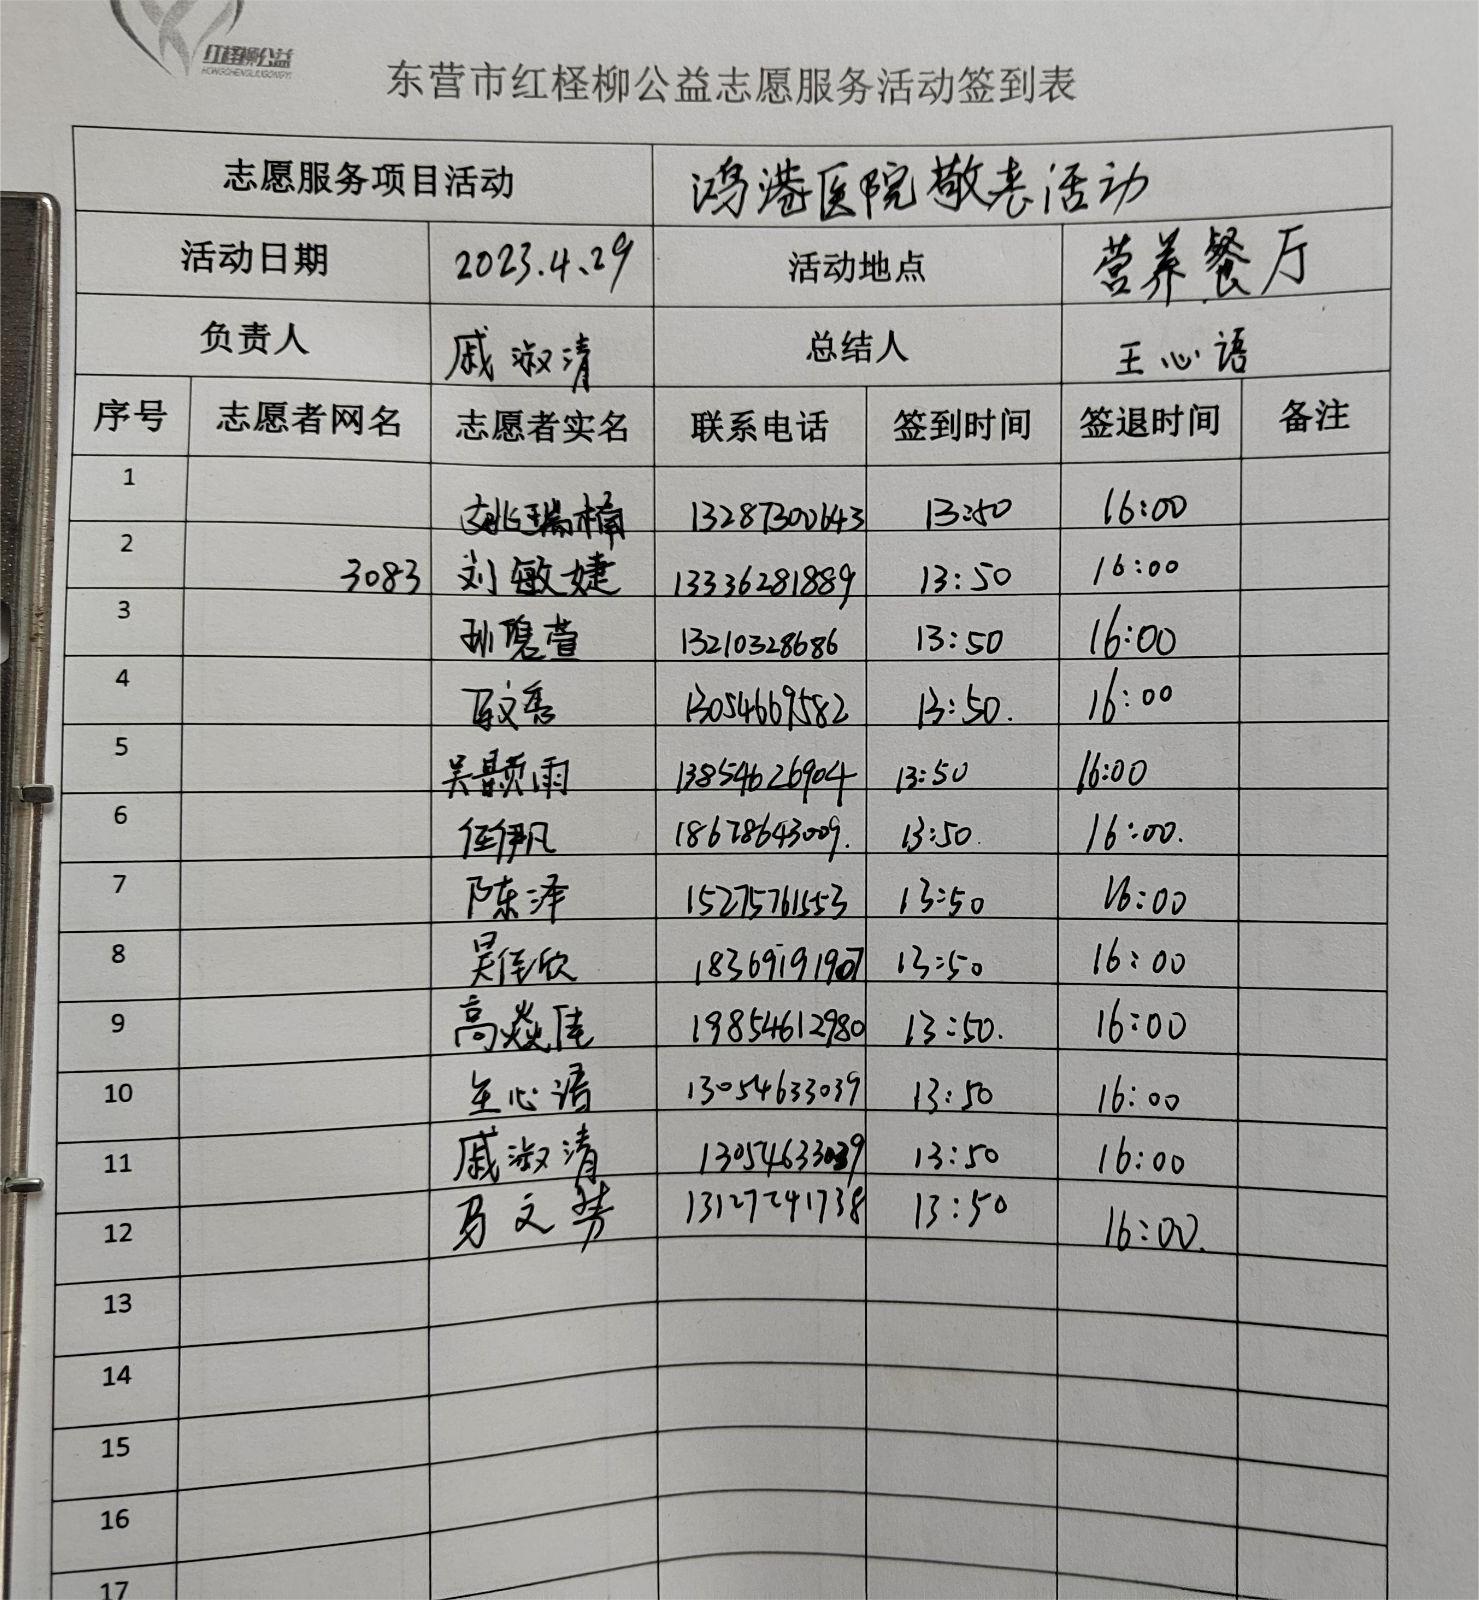 红柽柳公益
HONGCHENGLIUGONGYI
东营市红柽柳公益志愿服务活动签到表
志愿服务项目活动 鸿港医院敬老活动
活动日期 2023.4.29 活动地点 营养餐厅
负责人 戚淑清 总结人 王心语
序号 志愿者网名 志愿者实名 联系电话 签到时间 签退时间 备注
1 姚瑞楠 13287300643 13:50 16:00
2 3083 刘敏婕 13336281889 13:50 16:00
3 13210328686 13:50 16:00
4 13054669582 13:50. 16:00
5 吴颢雨 13854626904 13:50 16:00
6 任伊凡 18678643009. 13:50. 16:00.
7 陈泽 15275761553 13:50 16:00
8 吴佳欣 18369191907 13:50 16:00
9 高焱佳 19854612980 13:50. 16:00
10 王心语 13054633039 13:50 16:00
11 戚淑清 13054633039 13:50 16:00
12 马文梦 13127241738 13:50 16:00.
13
14
15
16
17